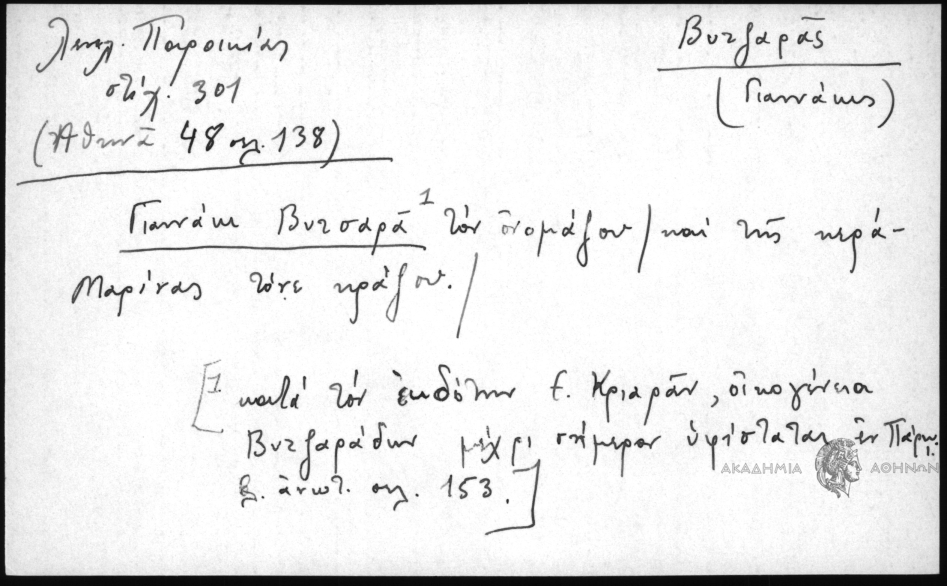 Λεηλ. Παροικίας
στίχ. 301
(Ἀθηνᾶ 48 σελ. 138)
Βυτζαρᾶς
(Γιαννάκης)
Γιαννάκι Βυτσαρᾶ¹ τὸν ὀνομάζου / καὶ τῆς κερά-
Μαρίνας τόνε κράζου. /
[¹ κατά τόν ἐκδότην Ε. Κριαρᾶν, οἰκογένεια
Βυτζαράδων μέχρι σήμερον ὑφίσταται ἐν Πάρῳ.
ἀνωτ. σελ. 153.]
ΑΚΑΔΗΜΙΑ ΑΘΗΝΩΝ